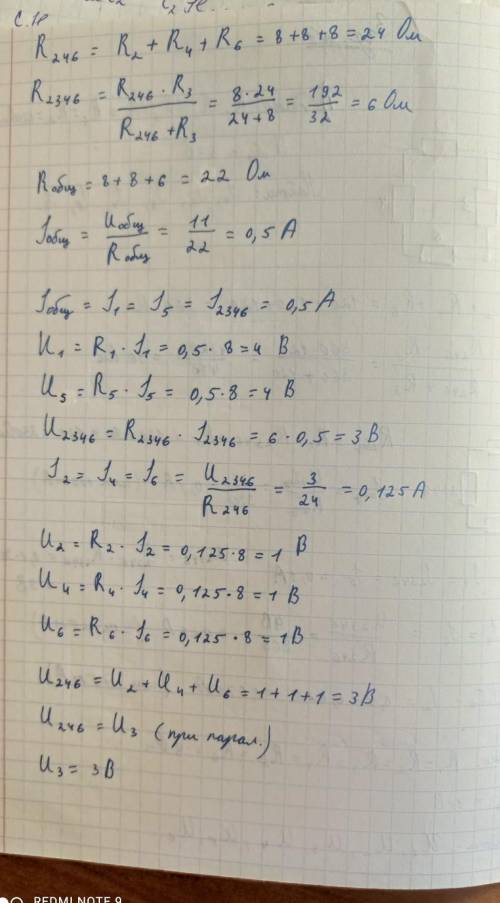 С.1р
R₂₄₆ = R₂ + R₄ + R₆ = 8 + 8 + 8 = 24 Ом
R₂₃₄₆ = R₂₄₆ · R₃ / R₂₄₆ + R₃ = 8 · 24 / 24 + 8 = 192 / 32 = 6 Ом
Rобщ = 8 + 8 + 6 = 22 Ом
Iобщ = Uобщ / Rобщ = 11 / 22 = 0,5 А
Iобщ = I₁ = I₅ = I₂₃₄₆ = 0,5 А
U₁ = R₁ · I₁ = 0,5 · 8 = 4 В
U₅ = R₅ · I₅ = 0,5 · 8 = 4 В
U₂₃₄₆ = R₂₃₄₆ · I₂₃₄₆ = 6 · 0,5 = 3 В
I₂ = I₄ = I₆ = U₂₃₄₆ / R₂₄₆ = 3 / 24 = 0,125 А
U₂ = R₂ · I₂ = 0,125 · 8 = 1 В
U₄ = R₄ · I₄ = 0,125 · 8 = 1 В
U₆ = R₆ · I₆ = 0,125 · 8 = 1 В
U₂₄₆ = U₂ + U₄ + U₆ = 1 + 1 + 1 = 3 В
U₂₄₆ = U₃ (при парал.)
U₃ = 3 В
REDMI NOTE 9